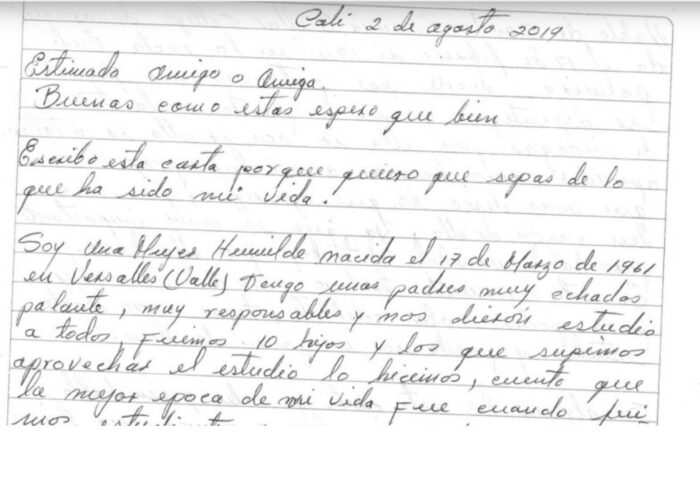 Cali 2 de agosto 2019
Estimado amigo o amiga.
Buenas como estas espero que bien
Escribo esta carta porque quiero que sepas de lo
que ha sido mi vida.
Soy una Mujer Humilde nacida el 17 de Marzo de 1961
en Versalles (Valle) Tengo unas padres muy echados
palante, muy responsables y nos dierón estudio
a todos, Fuimos 10 hijos y los que supimos
aprovechar el estudio lo hicimos, cuento que
la mejor epoca de mi vida Fue cuando fui-
mos